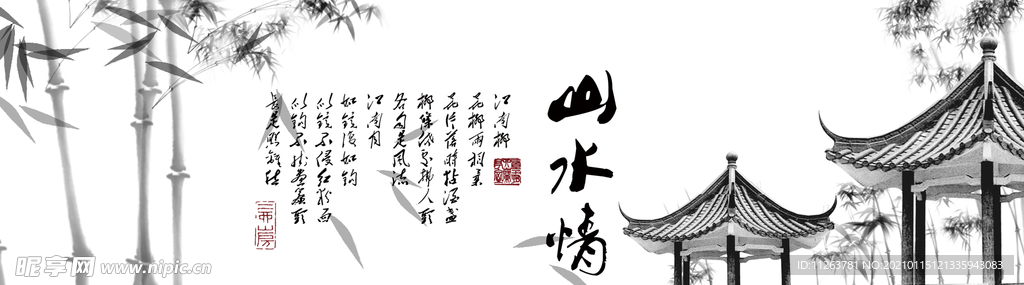 山水情
江南柳
花柳两相柔
花片落时黏酒盏
柳条低处拂人头
各自是风流
江南月
如镜复如钩
似镜不侵红粉面
似钩不挂画帘头
长是照离愁
昵享网 www.nipic.cn
ID:11263781 NO:20210115121335943083